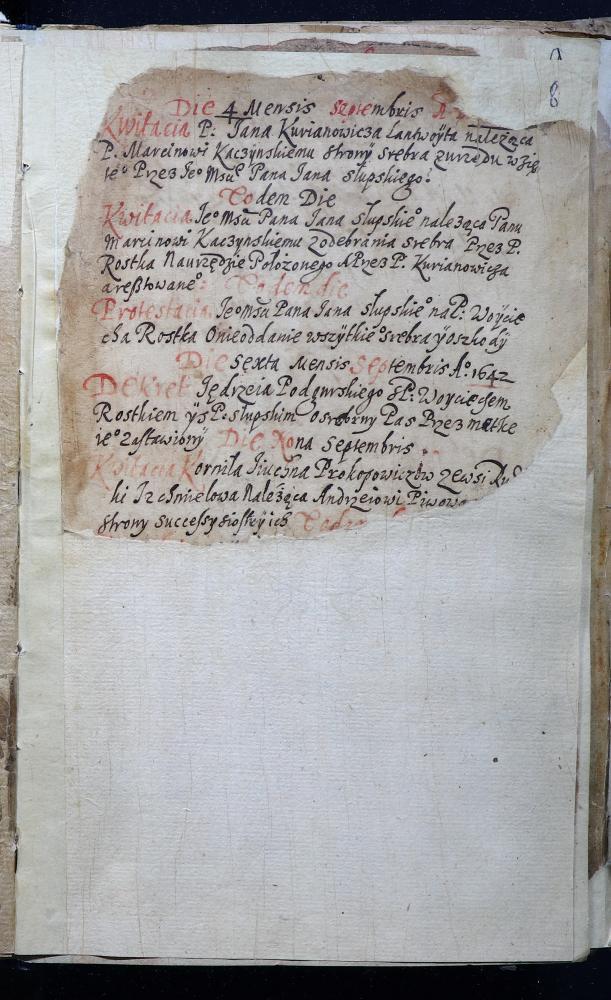 8
Die 4 Mensis Septembris A
Kwitacia P: Jana Kurianowicza Lantwoyta należąca
P. Marcinowi Kaczynskiemu strony srebra zurzędu wzię
te° Przez Je° Msci Pana Jana słupskiego.
Eodem Die
Kwitacia Je° Msci Pana Jana słupskie° należąca Panu
Marcinowi Kaczynskiemu zodebrania srebra Przez P.
Rostka Naurzędzie Położonego APrzez P. Kurianowicza
aresztowane° Eodem die
Protestacia Je° Msci Pana Jana słupskie° na P: Woycie
cha Rostka Onieoddanie wszytkie° srebra yoszkody
Die sexta Mensis Septembris A°. 1642
Dekret Jędrzeia Podgurskiego sP: Woyciechem
Rostkiem y sP. słupskim Osrebrny Pas Przez matkę
ie° zastawiony Die Nona Septembris .
Kwitacia Kornila Prokopowiczow zewsi
ki Iz chmelowa Należąca Andrzeiowi
strony successy siostry ich Eodem